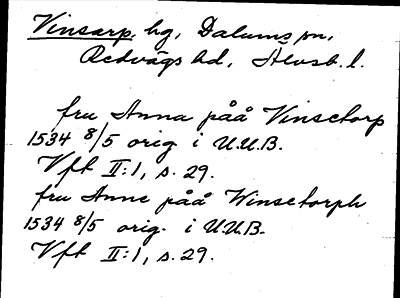 Vinsarp, hg, Dalums sn,
Redvägs hd, Älvsb. l.
fru Anna påå Vinsetorp
1534 8/5 orig. i U.U.B.
Vft II:1, s. 29.
fru Anne påå Winsetorph
1534 8/5 orig. i U.U.B.
Vft II:1, s. 29.